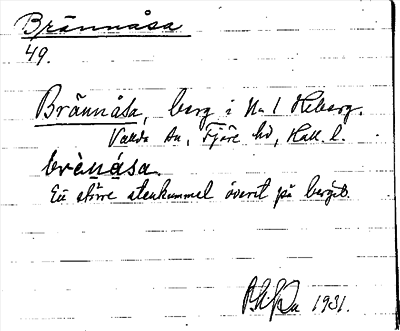 Brännåsa
49.
Brännåsa, berg i N. 1 Heberg.
Vallda sn, Fjäre hd, Hall. l.
brènása.
Ett större stenkummel överst på berget.
1931.